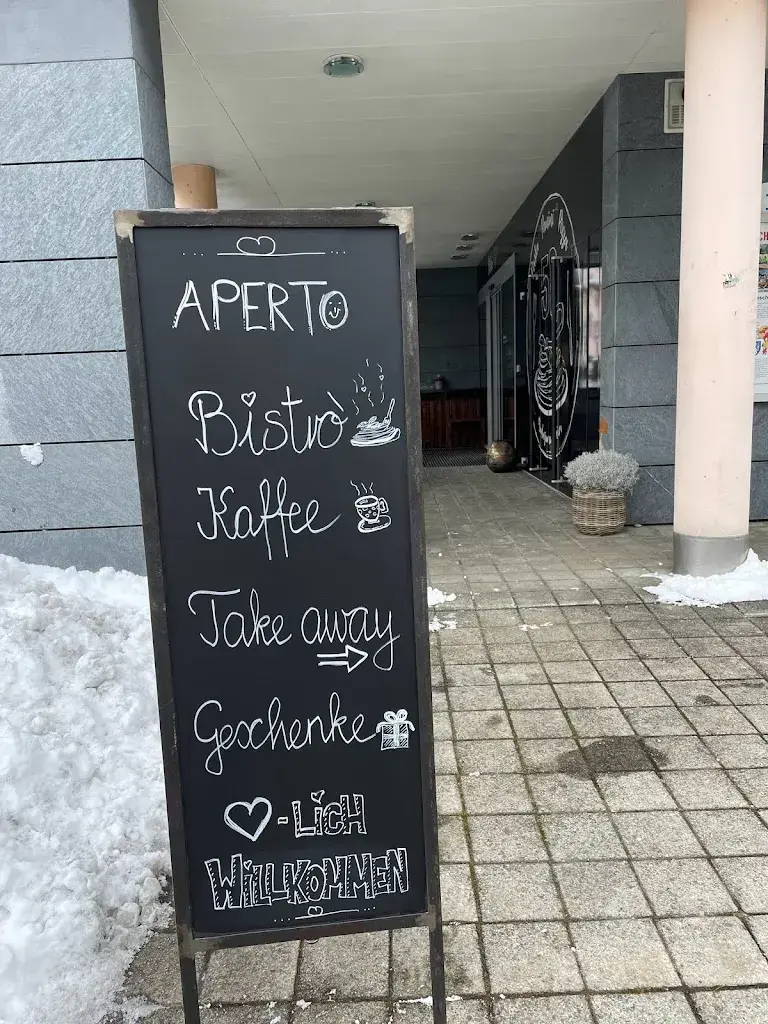 APERTO
Bistrò
Kaffee
Take away
Geschenke
♥-LICH
WILLKOMMEN